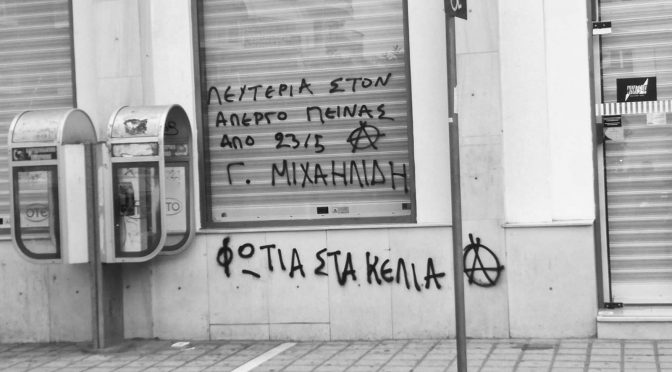 ΛΕΥΤΕΡΙΑ ΣΤΟΝ
ΑΠΕΡΓΟ ΠΕΙΝΑΣ
ΑΠΟ 23/5 Ⓐ
Γ. ΜΙΧΑΗΛΙΔΗ
ΦΩΤΙΑ ΣΤΑ ΚΕΛΙΑ Ⓐ
ΟΤΕ